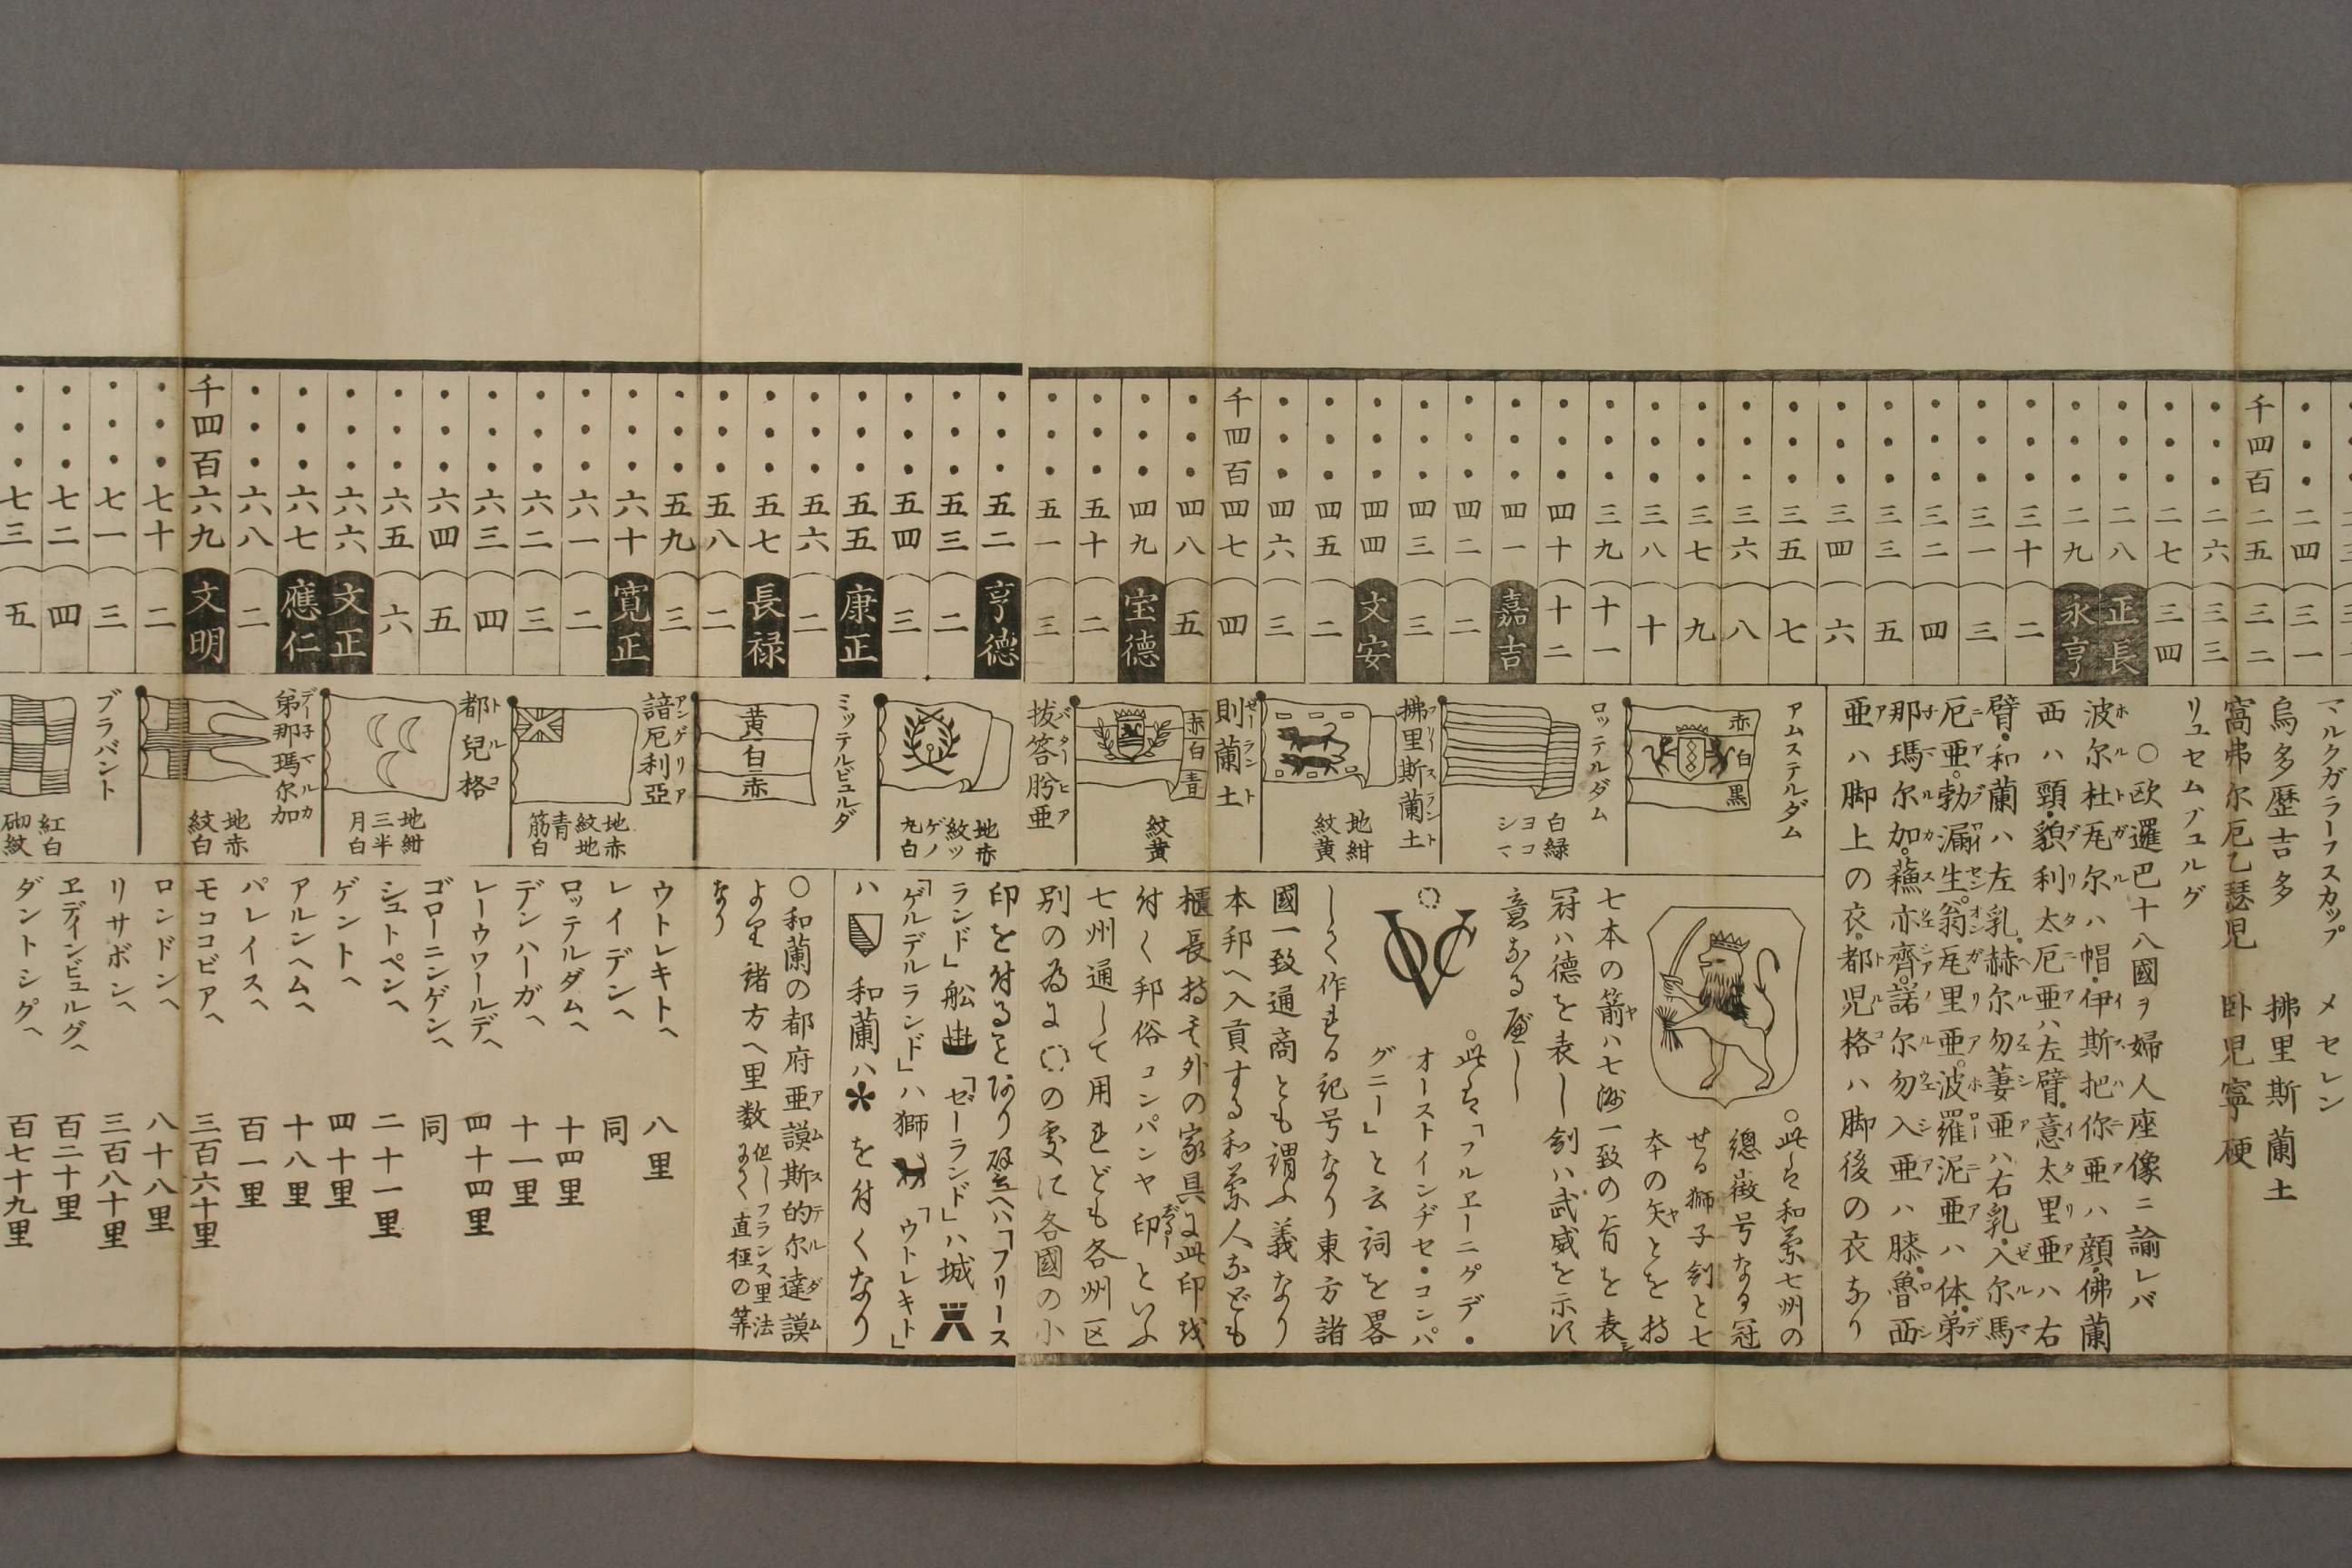 ・・・二四 三一
千四百二五 三二
・・・二六 三三
・・・二七 三四
・・・二八 正長
・・・二九 永亨
・・・三十 二
・・・三一 三
・・・三二 四
・・・三三 五
・・・三四 六
・・・三五 七
・・・三六 八
・・・三七 九
・・・三八 十
・・・三九 十一
・・・四十 十二
・・・四一 嘉吉
・・・四二 二
・・・四三 三
・・・四四 文安
・・・四五 二
・・・四六 三
千四百四七 四
・・・四八 五
・・・四九 宝德
・・・五十 二
・・・五一 三
・・・五二 亨德
・・・五三 二
・・・五四 三
・・・五五 康正
・・・五六 二
・・・五七 長禄
・・・五八 二
・・・五九 三
・・・六十 寛正
・・・六一 二
・・・六二 三
・・・六三 四
・・・六四 五
・・・六五 六
・・・六六 文正
・・・六七 應仁
・・・六八 二
千四百六九 文明
・・・七十 二
・・・七一 三
・・・七二 四
・・・七三 五
マルクガラーフスカップ メセレン
烏多歴吉多 拂里斯蘭土
窩弗尔厄乙瑟児 卧児寧硬
リュセムブュルグ
〇欧邏巴十八國ヲ婦人座像ニ諭レバ
波尔杜瓦尔ハ帽・伊斯把你亜ハ顔・佛蘭
西ハ頸・貌利太厄亜ハ左臂・意太里亜ハ右
臂・和蘭ハ左乳・赫尔勿萋亜ハ右乳・入尔馬
厄亜。勃漏生。翁瓦里亜。波羅泥亜ハ体・弟
那瑪尔加。蘓亦齊。諾尔勿入亜ハ膝・魯西
亜ハ脚上の衣。都児格ハ脚後の衣なり
アムステルダム
赤 白 黒
ロッテルダム
白緑
ヨココ
シマ
拂里斯蘭土
フリースラント
地紺
紋黄
則蘭土
ゼーラント
赤 白 青
紋黄
抜答肹亜
バターヒア
地赤
紋ッ
ゲノ
九白
ミッテルビュルダ
黄 白 赤
諳厄利亞
アンゲリア
地赤
紋地
青
筋白
都兒格
トルコ
地紺
三半
月白
弟那瑪尔加
デー子マルカ
地赤
紋白
ブラバント
紅白
砌紋
〇此ハ和蘭七州の
總徴号なる冠
せる獅子釼と七
本の矢とを持
七本の箭ハ七洲一致の旨を表シ
冠ハ德を表し釼ハ武威を示す
意なる歟し
VOC
〇此ハ「フルヱーニグデ・
オーストインヂセ・コンパ
グニー」と云詞を畧
しく作れる記号なり東方諸
國一致通商とも謂ふ義なり
本邦へ入貢する和蘭人なども
櫃長持其外の家具に此印を
付く邦俗コンパンヤ印といふ
七州通して用れども各州区
別の為に〇の処に各國の小
印を付ることあり譬へハ「フリース
ランド」舩「ゼーランド」ハ城
「ゲルデルランド」ハ獅「ウトレキト」
ハ 和蘭ハ を付くなり
〇和蘭の都府亜謨斯的尔達謨
アムステルダム
より諸方へ里数 但しフランス里法
直徑の筭
なり
ウトレキトへ 八里
レイデンへ 同
ロッテルダムへ 十四里
デンハーガへ 十一里
レーウワールデへ 四十四里
ゴローニンゲンへ 同
シュトペンへ 二十一里
ゲントへ 四十里
アルンヘムへ 十八里
パレイスへ 百一里
モココビアへ 三百六十里
ロンドンへ 八十八里
リサボンへ 三百八十里
ヱディンビュルグへ 百二十里
ダントシグへ 百七十九里